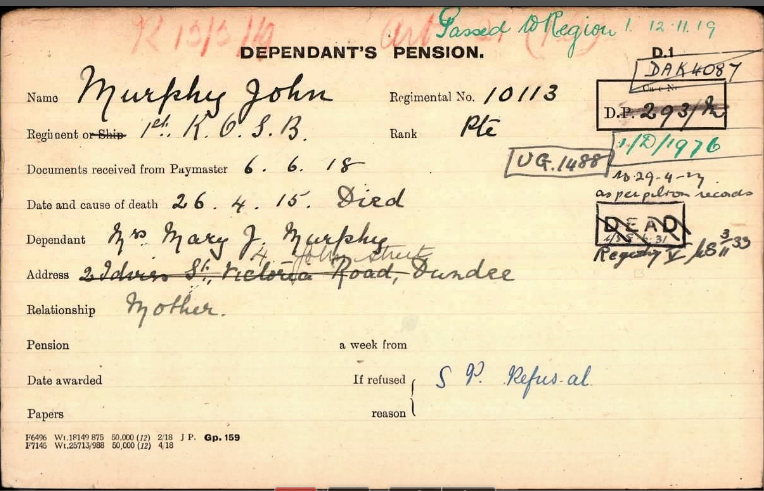 Passed to Region 1. 12.11.19
DEPENDANT'S PENSION.
D.1
DAK4087
Name Murphy John Regimental No. 10113
D.P. 293/M
Regiment or Ship 1st K.O.S.B. Rank Pte
1/D/1976
UG.1488
Documents received from Paymaster 6.6.18
as per pension records
Date and cause of death 26.4.15. Died
DEAD
Dependant Mrs Mary J. Murphy
4 John Street
Address 2 Idvies St, Victoria Road, Dundee
Relationship Mother.
Pension a week from
Date awarded If refused S P. Refusal
Papers reason
F6496 Wt.18149 875 50,000 (12) 2/18 J P. Gp. 159
F7145 Wt.25713/988 50,000 (12) 4/18